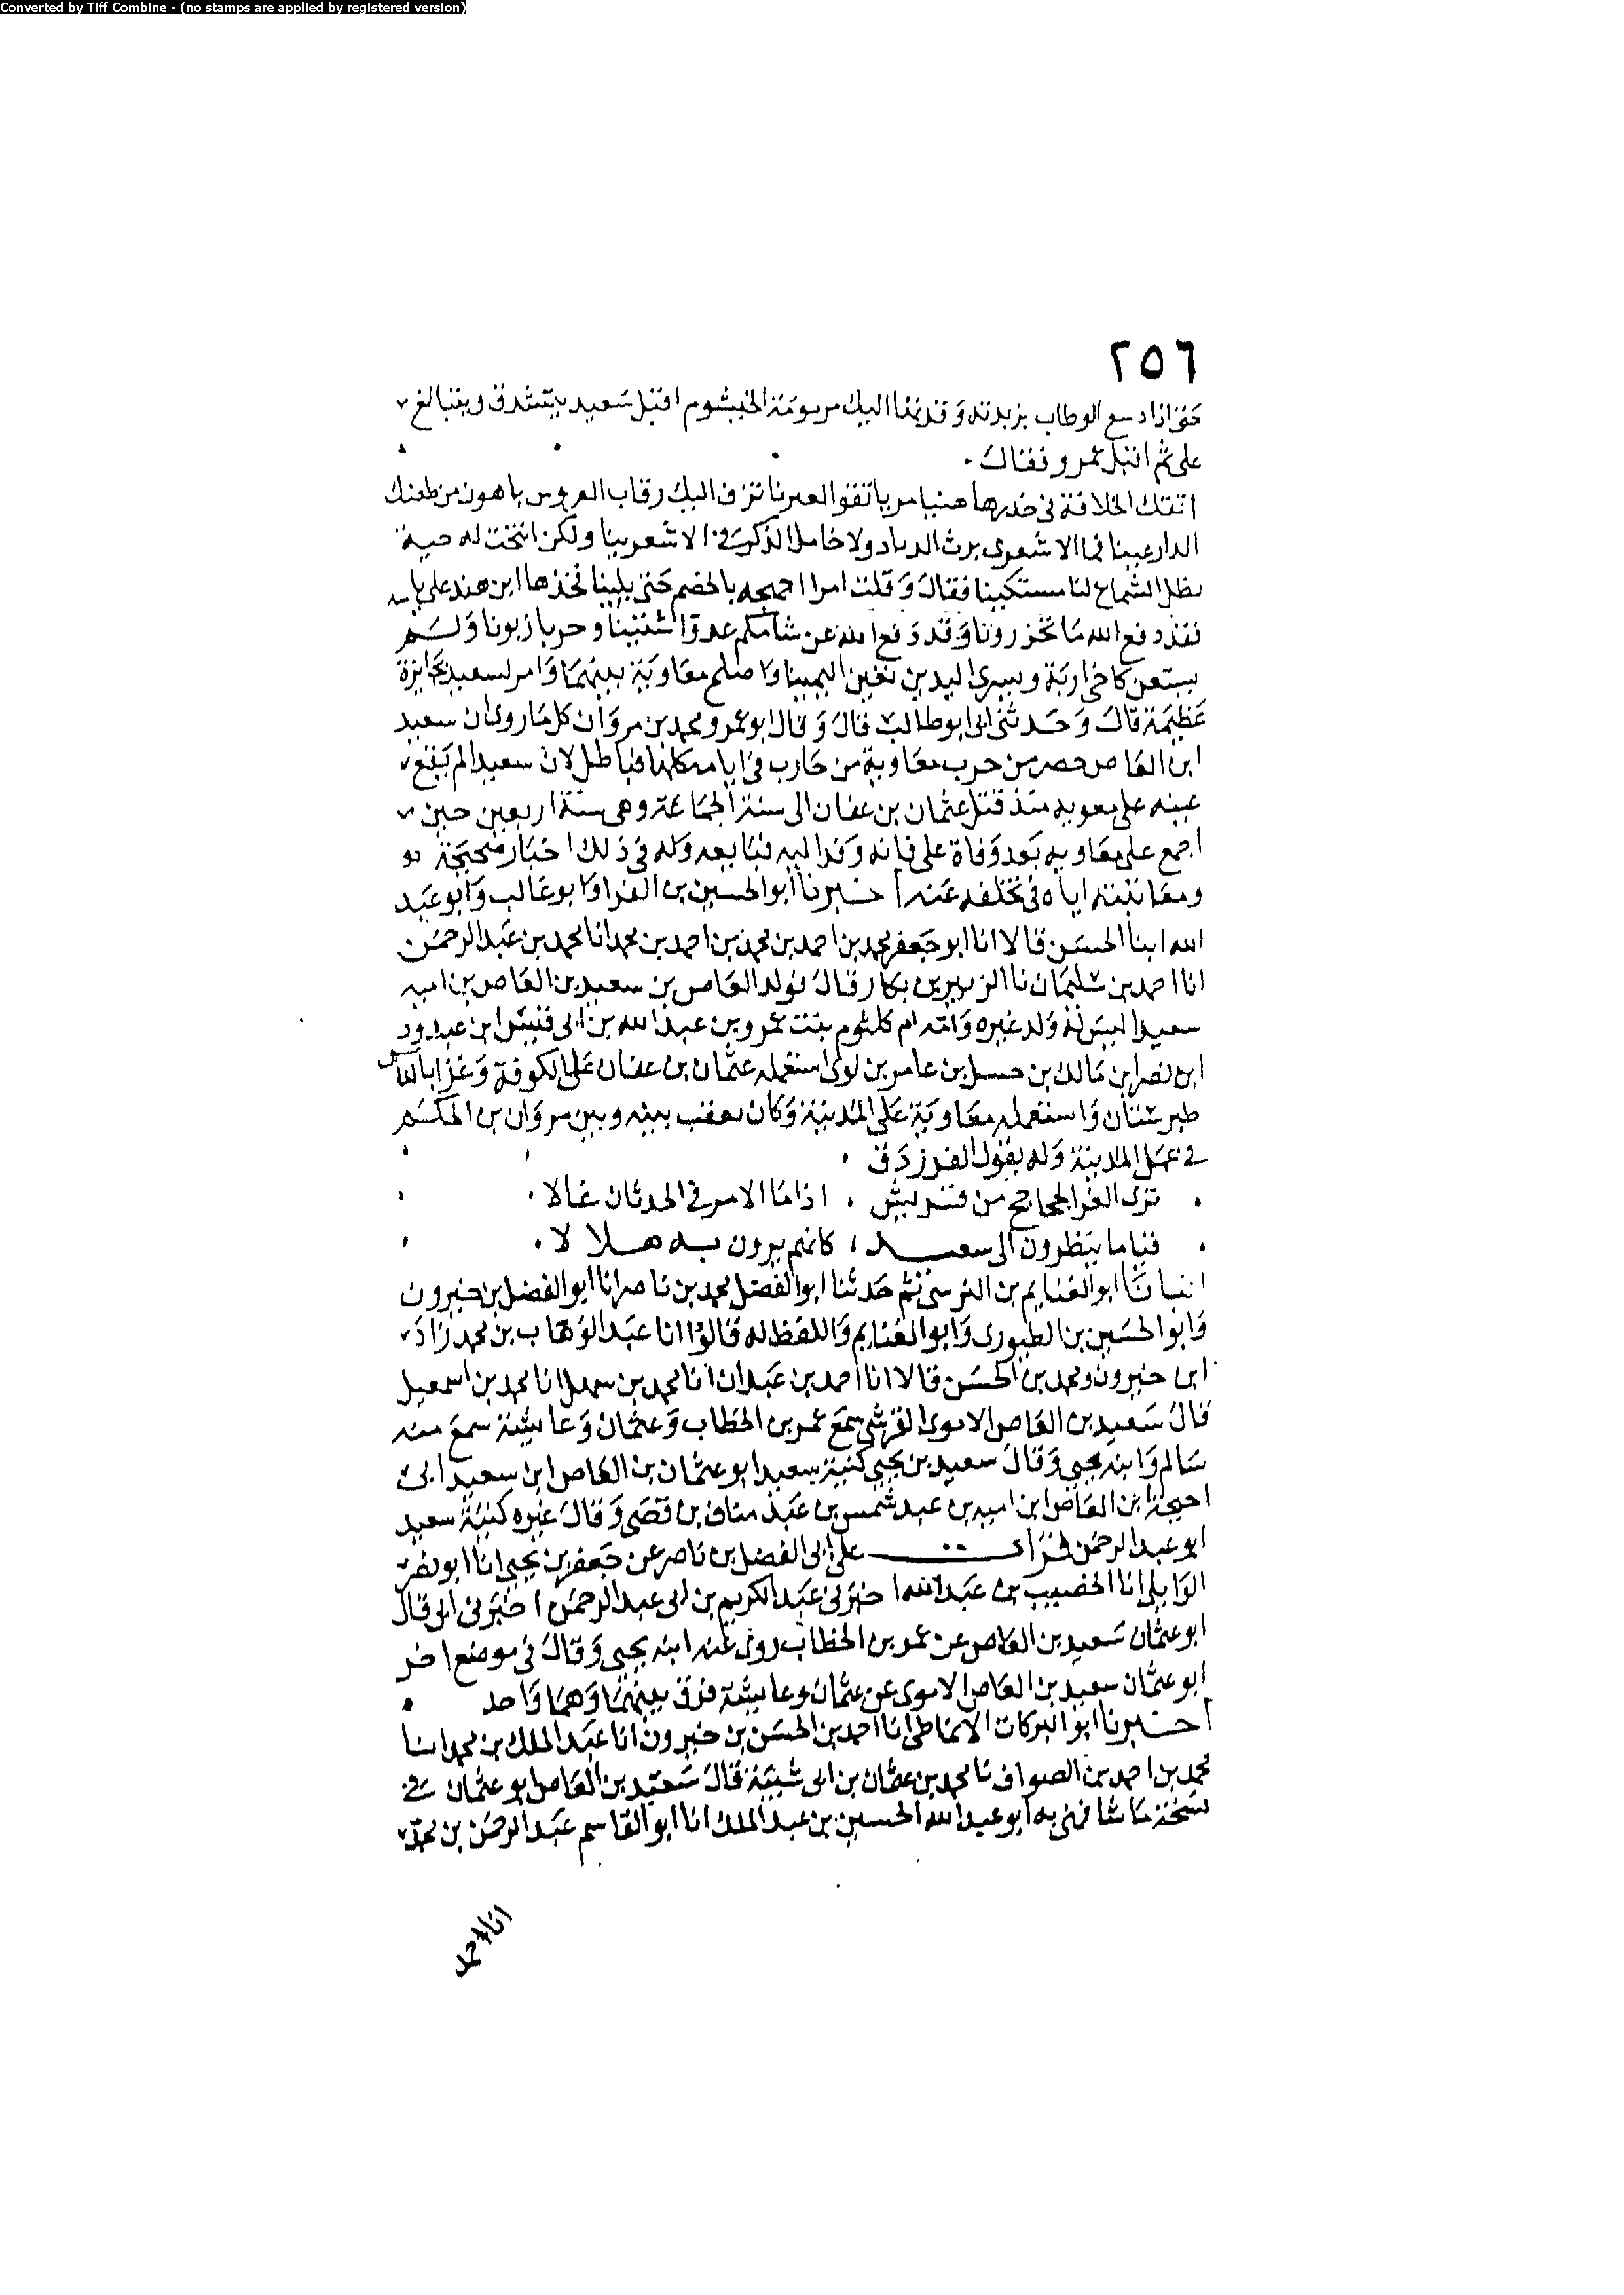 Converted by Tiff Combine - (no stamps are applied by registered version)
٢٥٦
حتى اذا دسع الوطاب بزبدته وقدتمنا اليك مربومة الخيشوم اقبل سعيد يتشدق ويتبالغ
على ثم اقبل عمرو فقال
اتتك الخلافة في خدرها هنيا مريا تقر العيونا تزف اليك زفاف العروس باهون من طعنك
الدارعينا فما الاشعري برث الزناد ولا خامل الذكر في الاشعرينا ولكن اتيحت له حية
يظل الشجاع لها مستكينا فقال وقلت امرا اجهجه بالخصم حتى يلينا فخذها ابن هند على باسه
فقد دفع الله ما تحذرونا وقد دفع الله عن شامكم عدوا شنيئا وحربا زبونا ولم
يستعن كاخي اربة ويسرى اليدين تعين اليمينا واصلح معاوية بينهما وامر لسعيد بجايزة
عظيمة قال وحدثني ابي ابو طالب قال وقال ابو عمرو محمد بن مروان كل ما روي ان سعيد
ابن العاص حضر من حرب معاوية من حارب في ايامه كلها فباطل لان سعيدا لم تقع
عينه على معويه منذ قتل عثمان بن عفان الى سنة الجماعة وهي سنة اربعين حين
اجمع على معاويه بعد وفاة علي فانه وفد اليه فبايعه وله في ذلك اخبار صحيحة
ومعاتبته اياه في تخلفه عنه اخبرنا ابو الحسين بن الفرا وابو غالب وابو عبد
الله ابنا الحسن قالا انا ابو جعفر محمد بن احمد بن محمد بن احمد بن محمد انا محمد بن عبد الرحمن
انا احمد بن سليمان نا الزبير بن بكار قال فولد العاص بن سعيد بن العاص بن اميه
سعيدا ليس له ولد غيره وامه ام كلثوم بنت عمرو بن عبد الله بن ابي قيس ابن عبد ود
ابن نصر ابن مالك بن حسل بن عامر بن لوى استعمله عثمان بن عفان على الكوفة وغزا بالناس
طبرستان واستعمله معاوية على المدينة وكان يعقب بينه وبين مروان بن الحكم
في عمل المدينة وله يقول الفرزدق
ترى الغر الجحاجح من قريش . اذا ما الامر في الحدثان غالا
قياما ينظرون الى سعيد ، كانهم يرون به هلالا
انبانا ابو الغنايم بن النرسي ثم حدثنا ابو الفضل محمد بن ناصر انا ابو الفضل بن خيرون
وابو الحسين بن الطيورى وابو الغنايم واللفظ له قالوا انا عبد الوهاب بن محمد زاد
ابن خيرون ومحمد بن الحسن قالا انا احمد بن عبدان انا محمد بن سهل انا محمد بن اسمعيل
قال سعيد بن العاص الاموى القرشي سمع عمر بن الخطاب وعثمان وعايشة سمع منه
سالم وابنه يحيى وقال سعيد بن يحيى كنية سعيد ابو عثمان بن العاص ابن سعيد ابي
احيحة ابن العاص ابن اميه بن عبد شمس بن عبد مناف بن قصى وقال غيره كنية سعيد
ابو عبد الرحمن قرات على ابي الفضل بن ناصر عن جعفر بن يحيى انا ابو نصر
الوايلي انا الخصيب بن عبد الله اخبرني عبد الكريم بن ابي عبد الرحمن اخبرني ابي قال
ابو عثمان سعيد بن العاص عن عمر بن الخطاب روى عنه ابنه يحيى وقال في موضع اخر
ابو عثمان سعيد بن العاص الاموى عن عثمان وعايشة فرق بينهما وهما واحد
اخبرنا ابو البركات الانماطي انا احمد بن الحسن بن خيرون انا عبد الملك بن محمد انا
محمد بن احمد بن الصواف نا محمد بن عثمان بن ابي شيبة قال سعيد بن العاص ابو عثمان في
نسخة ما شافهني به ابو عبد الله الحسين بن عبد الملك انا ابو القاسم عبد الرحمن بن محمد
انا احمد